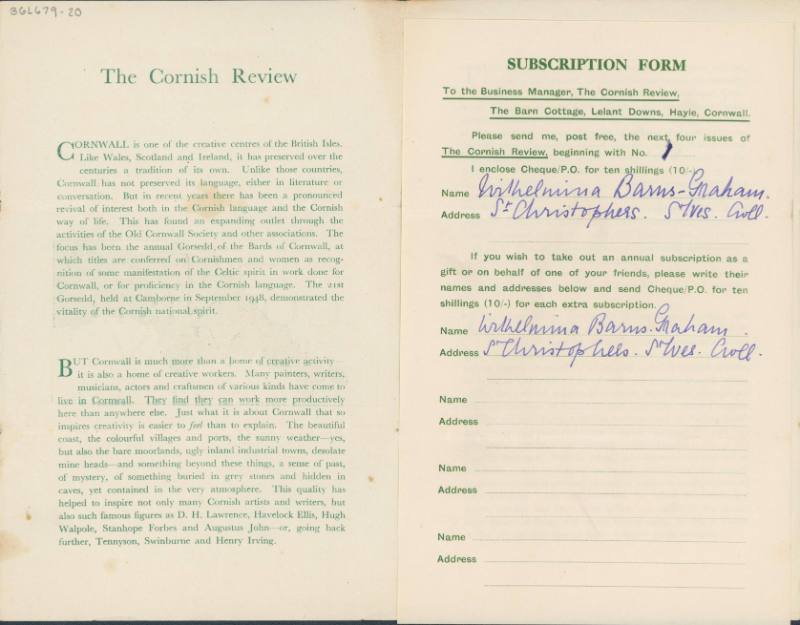 BGL679-20
The Cornish Review
CORNWALL is one of the creative centres of the British Isles.
Like Wales, Scotland and Ireland, it has preserved over the
centuries a tradition of its own. Unlike those countries,
Cornwall has not preserved its language, either in literature or
conversation. But in recent years there has been a pronounced
revival of interest both in the Cornish language and the Cornish
way of life. This has found an expanding outlet through the
activities of the Old Cornwall Society and other associations. The
focus has been the annual Gorsedd of the Bards of Cornwall, at
which titles are conferred on Cornishmen and women as recog-
nition of some manifestation of the Celtic spirit in work done for
Cornwall, or for proficiency in the Cornish language. The 21st
Gorsedd, held at Camborne in September 1948, demonstrated the
vitality of the Cornish national spirit.
BUT Cornwall is much more than a home of creative activity—
it is also a home of creative workers. Many painters, writers,
musicians, actors and craftsmen of various kinds have come to
live in Cornwall. They find they can work more productively
here than anywhere else. Just what it is about Cornwall that so
inspires creativity is easier to feel than to explain. The beautiful
coast, the colourful villages and ports, the sunny weather—yes,
but also the bare moorlands, ugly inland industrial towns, desolate
mine heads—and something beyond these things, a sense of past,
of mystery, of something buried in grey stones and hidden in
caves, yet contained in the very atmosphere. This quality has
helped to inspire not only many Cornish artists and writers, but
also such famous figures as D. H. Lawrence, Havelock Ellis, Hugh
Walpole, Stanhope Forbes and Augustus John—or, going back
further, Tennyson, Swinburne and Henry Irving.
SUBSCRIPTION FORM
To the Business Manager, The Cornish Review,
The Barn Cottage, Lelant Downs, Hayle, Cornwall.
Please send me, post free, the next four issues of
The Cornish Review, beginning with No. 1
I enclose Cheque/P.O. for ten shillings (10/-
Name Wilhelmina Barns-Graham.
Address St Christophers. St Ives. Cwll.
If you wish to take out an annual subscription as a
gift or on behalf of one of your friends, please write their
names and addresses below and send Cheque/P.O. for ten
shillings (10/-) for each extra subscription.
Name Wilhelmina Barns-Graham.
Address St Christophers. St Ives. Cwll.
Name
Address
Name
Address
Name
Address